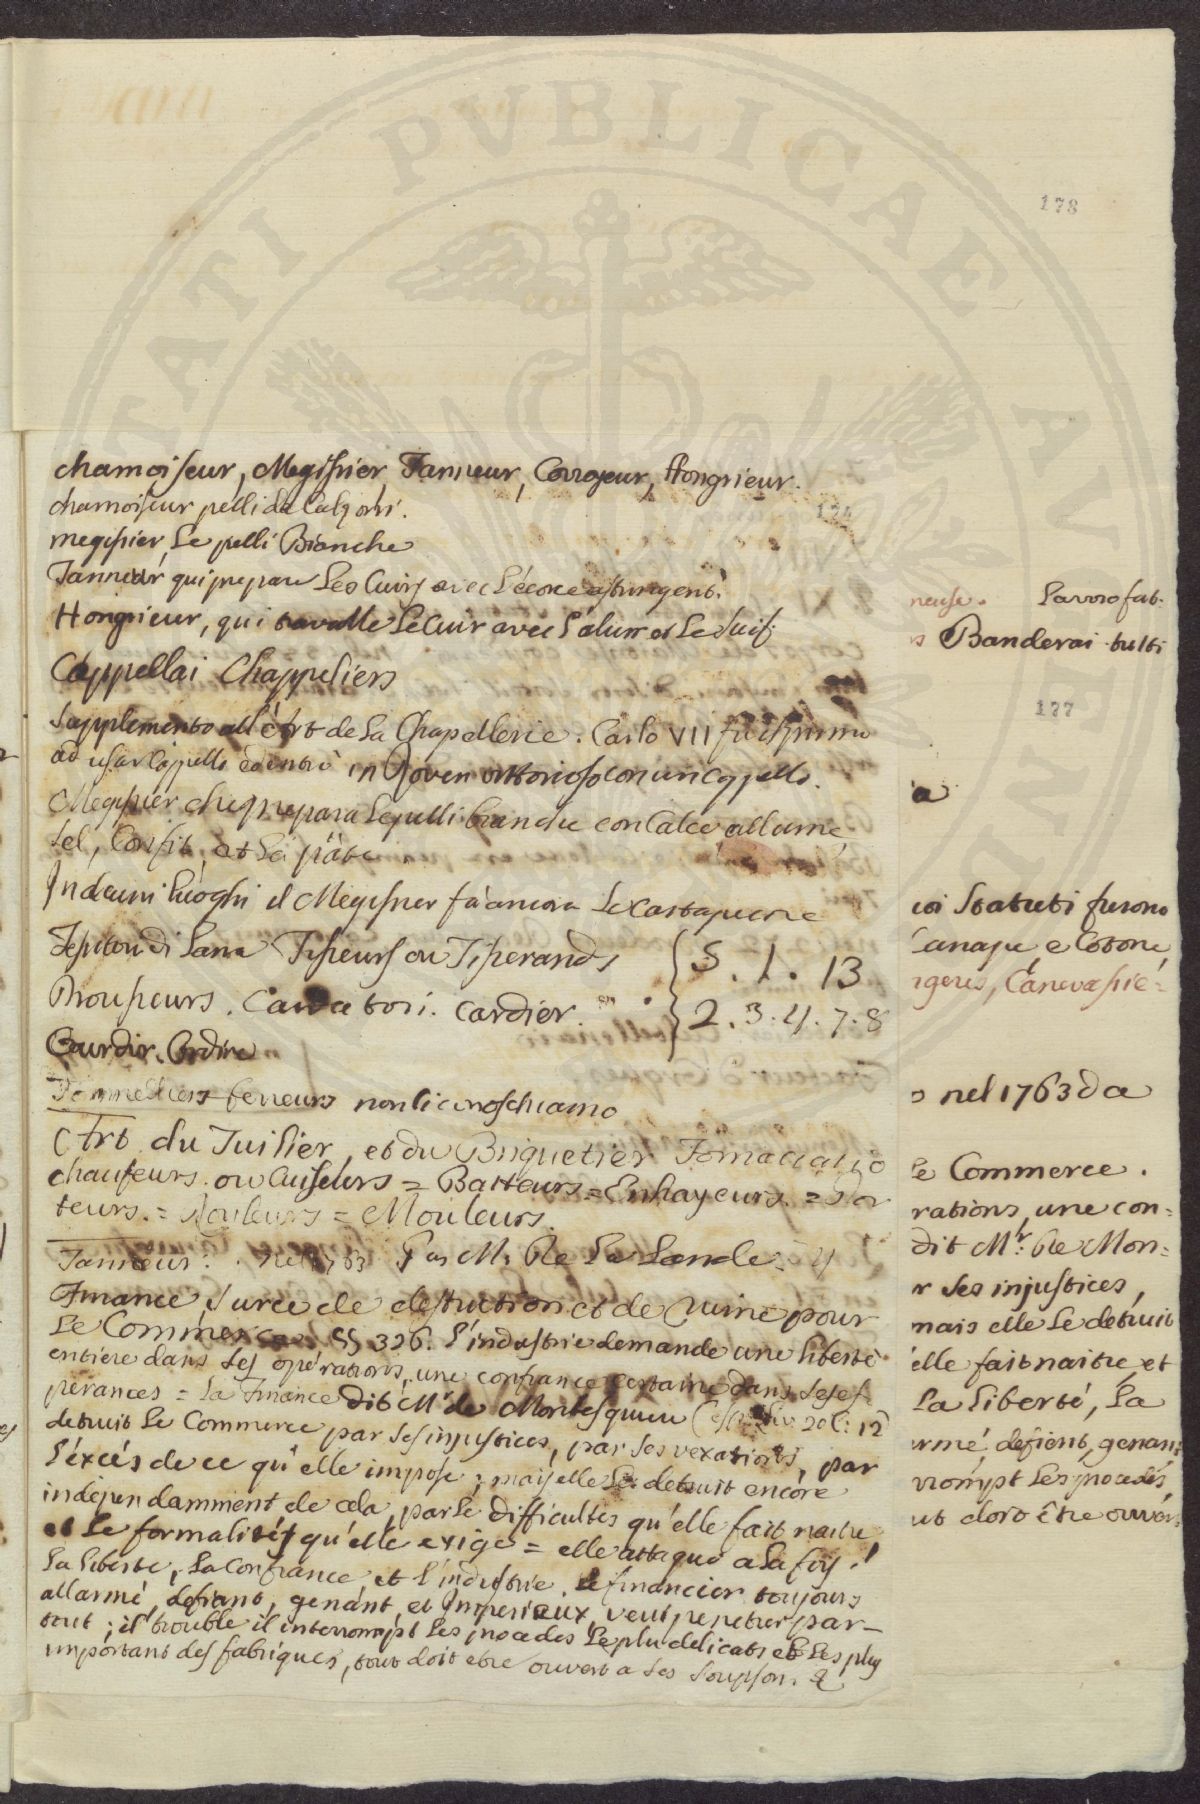 PVBLICAE
178
chamoiseur, Megissier, Tanneur, Corroyeur, Hongrieur.
chamoiseur pelli da Calzoni.
174
megissier, Le pelli Bianche
Tanneur qui prepare Les Cuirs avec l'écorce astringent.
Hongrieur, qui travalle Le Cuir avec l'alun et Le suif
Cappellai Chappeliers
Supplemento all'Art de La Chapellerie. Carlo VII fu il primo
ad usar Cappello ed entrò in Roven vittorioso con un Cappello.
Megissier che prepara Le pelli bianche con Calce allume
Sel, Confit, et La pâte
In alcuni luoghi il Megissier fà ancora Le Cartapecore
Tessitori di Lana Tisseurs ou Tisserands
S. 1. 13
Drousseurs. Cardatori. Cardier.
2. 3. 4. 7. 8
Ourdir. Ordire
non li conoschiamo
Art du Tuilier, et du Briquetier Fornaciaijo
chaufeurs ou Cuiseurs = Batteurs = Enhayeurs =
teurs = Rouleurs = Mouleurs.
Tanneur. nel 1763 Par M. De La Lande
Finance, Surce de destruction et de ruine pour
Le Commerce §§ 326. l'industrie demande une liberté
entiere dans Ses opérations, une confiance certaine dans Ses es=
perances = La finance dit Mr de Montesquieu (esp. Liv 20 C: 12)
detruit Le Commerce par Ses injustices, par Ses vexations, par
l'excés de ce qu'elle impose; mais elle Le detruit encore
indépendamment de cela, par Le difficultes qu'elle fait naitre
et Le formalités qu'elle exige = elle attaque a La fois
La liberte, La Confiance et l'industrie. Le financier toujours
allarmé, defiant, genánt, et Imperieux, veut penetrer par=
tout; il trouble il interrompt Les procedes Le plu delicats et Les plus
important des fabriques, tout doit etre ouvert a Ses Soupson. &
neuse. Lavoro fat.
Banderai tutti
177
a
coi Statuti furono
Canape, e Cotone,
ngeres, Canevassie=
o nel 1763 da
Le Commerce.
rations, une con=
dit Mr. De Mon=
r Ses injustices,
mais elle Le detruit
elle fait naitre, et
La liberté, La
armé, defiant, genan
rrompt Les procedés,
ut doit être ouver=